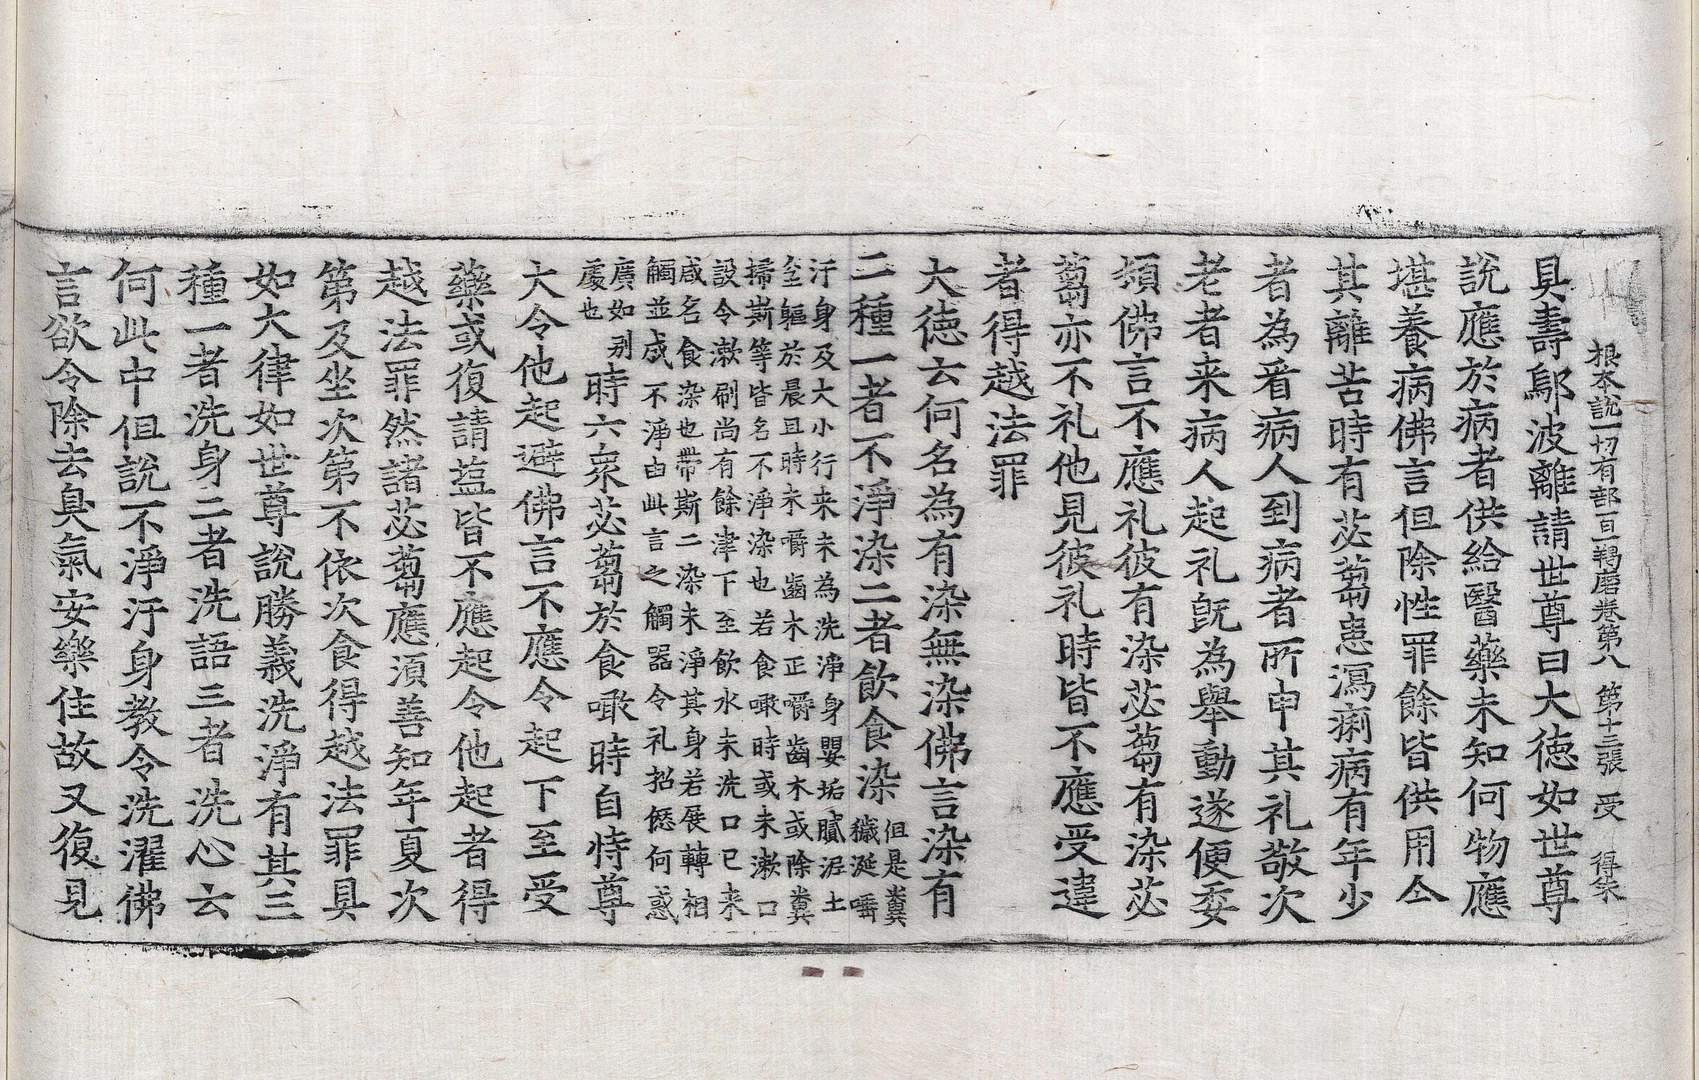 根本說一切有部百一羯磨卷第八 第十三張 受 得柒
具壽鄔波離請世尊曰大德如世尊
說應於病者供給醫藥未知何物應
堪養病佛言但除性罪餘皆供用令
其離苦時有苾蒭患瀉痢病有年少
者為看病人到病者所申其礼敬次
老者来病人起礼旣為舉動遂便委
頓佛言不應礼彼有染苾蒭有染苾
蒭亦不礼他見彼礼時皆不應受違
者得越法罪
大德云何名為有染無染佛言染有
二種一者不淨染二者飲食染
但是糞
穢涎唾
汙身及大小行来未為洗淨身嬰垢膩泥土
坌軀於晨旦時未嚼齒木正嚼齒木或除糞
掃斯等皆名不淨染也若食噉時或未漱口
設令漱刷尚有餘津下至飲水未洗口已来
咸名食染也帶斯二染未淨其身若展轉相
觸並成不淨由此言之觸器令礼招愆何惑
廣如別
處也
時六衆苾蒭於食噉時自恃尊
大令他起避佛言不應令起下至受
藥或復請塩皆不應起令他起者得
越法罪然諸苾蒭應須善知年夏次
第及坐次第不依次食得越法罪具
如大律如世尊說勝義洗淨有其三
種一者洗身二者洗語三者洗心云
何此中但說不淨汙身教令洗濯佛
言欲令除去臭氣安樂住故又復見